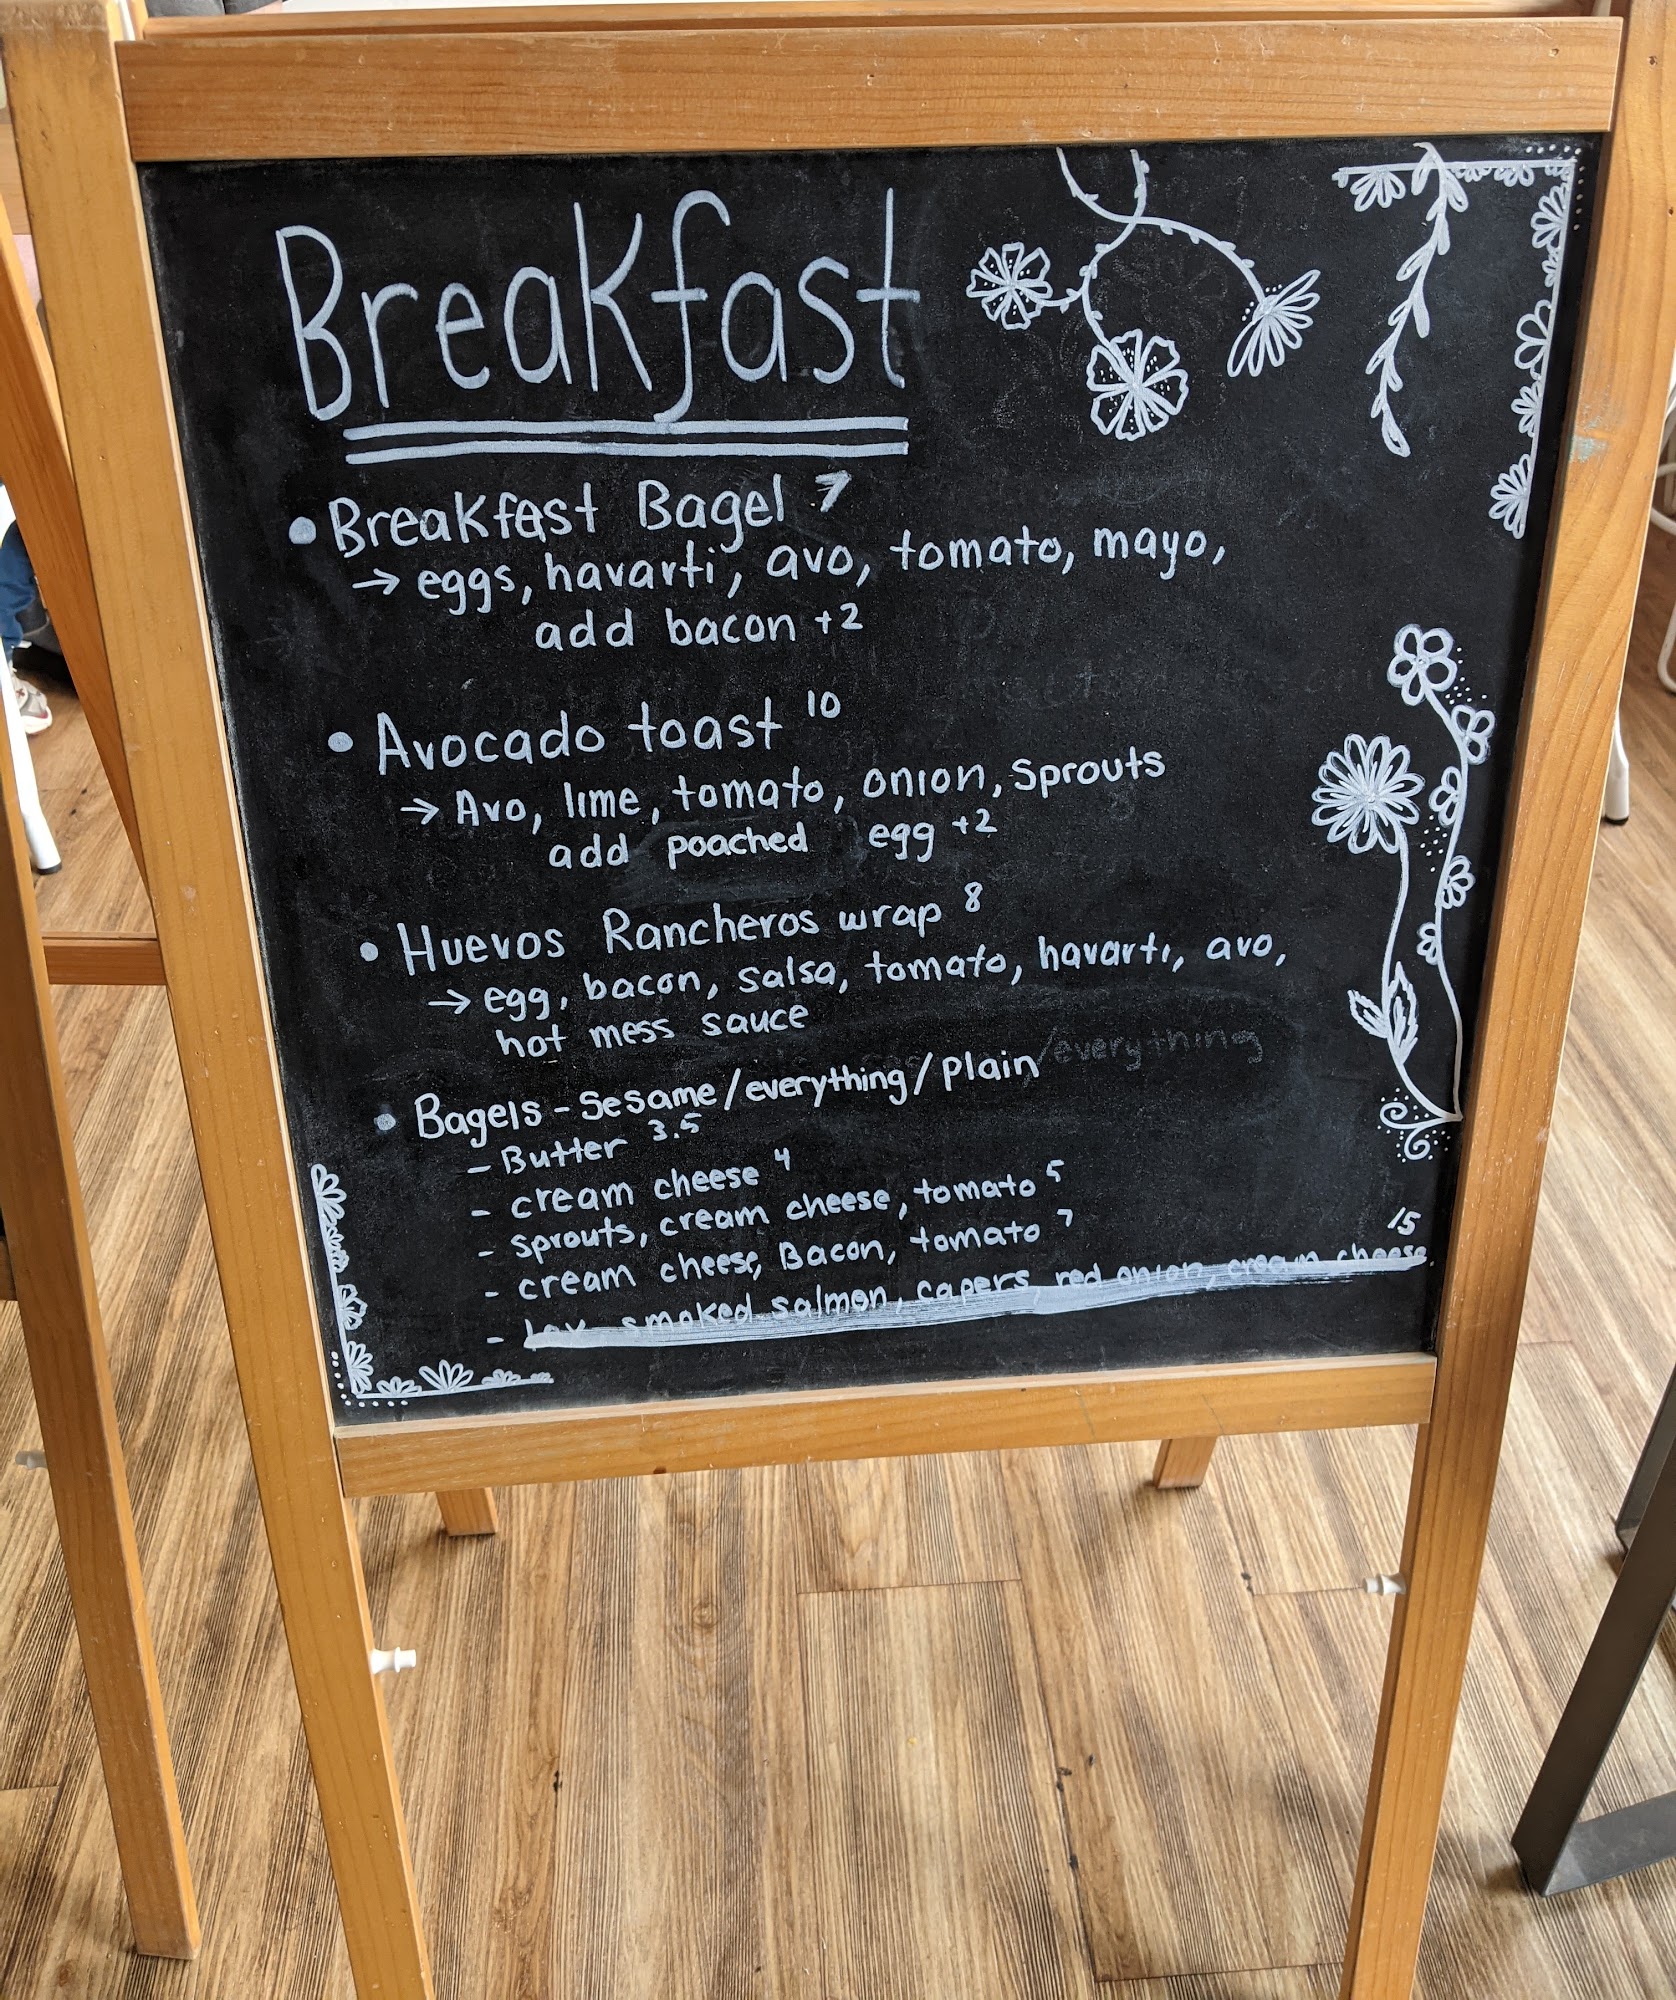 Breakfast
• Breakfast Bagel 7
→ eggs, havarti, avo, tomato, mayo,
add bacon +2
• Avocado toast 10
→ Avo, lime, tomato, onion, sprouts
add poached egg +2
• Huevos Rancheros wrap 8
→ egg, bacon, salsa, tomato, havarti, avo,
hot mess sauce
• Bagels - Sesame/everything/Plain/everything
- Butter 3.5
- cream cheese 4
- sprouts, cream cheese, tomato 5
- cream cheese, Bacon, tomato 7
- Lox smoked salmon, capers, red onion, cream cheese 15